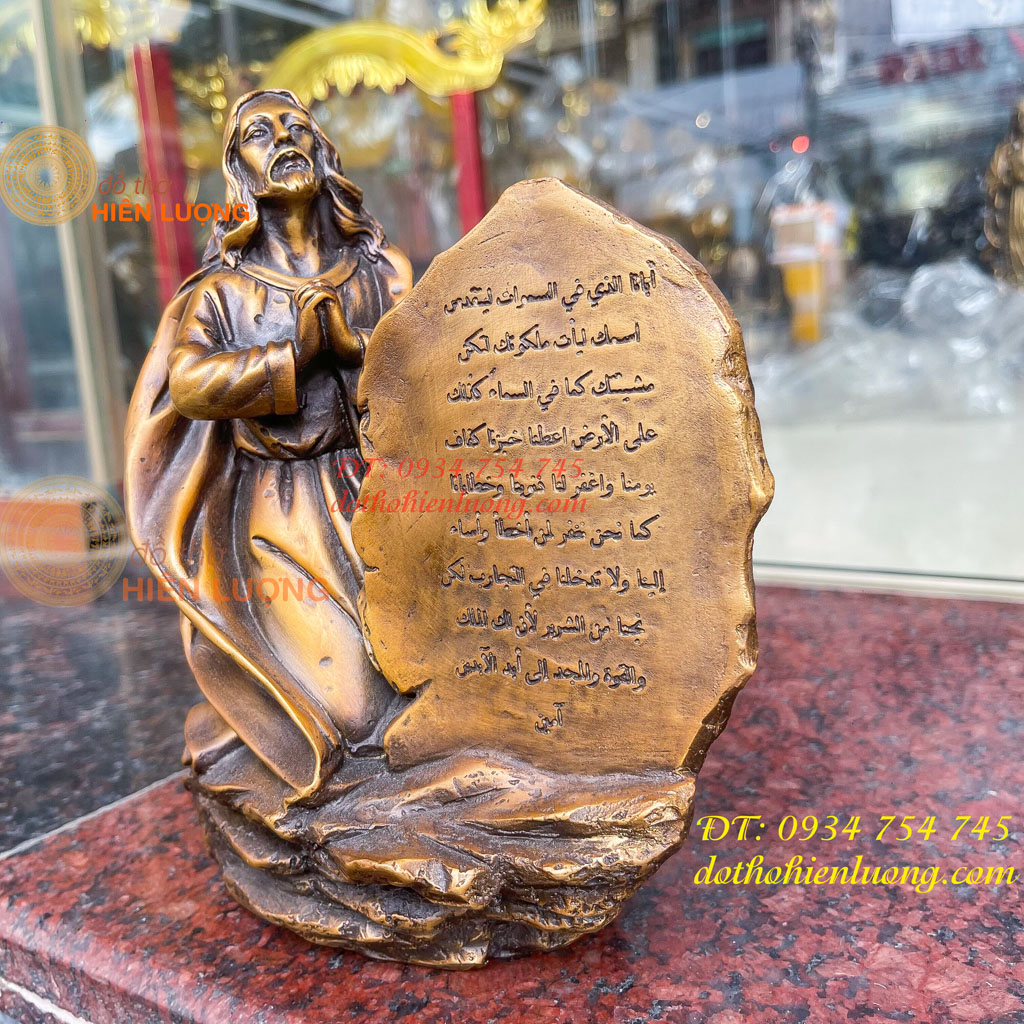 đồ thờ
HIỀN LƯỢNG
أبانا الذي في السموات ليتقدس
اسمك ليأت ملكوتك لتكن
مشيئتك كما في السماء كذلك
على الأرض اعطنا خبزنا كفاف
يومنا واغفر لنا ذنوبنا وخطايانا
كما نحن نغفر لمن أخطأ وأساء
إلينا ولا تدخلنا في التجارب لكن
نجنا من الشرير لأن لك
والقوة والمجد إلى أبد الآبدين
آمين
ĐT: 0934 754 745
dothohienluong.com
đồ thờ
HIỀN LƯỢNG
ĐT: 0934 754 745
dothohienluong.com